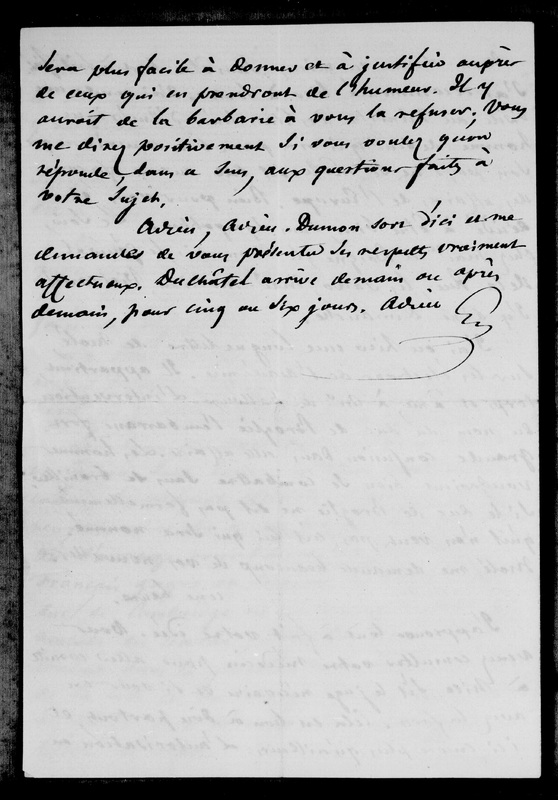 sera plus facile à donner et à justifier auprès
de ceux qui en prendront de l'humeur. Il y
aurait de la barbarie à vous la refuser. Vous
me direz positivement si vous voulez qu'on
réponde, dans ce sens, aux questions faites à
votre sujet.
Adieu, Adieu. Dumon sort d'ici et me
demande de vous présenter ses respects vraiment
affectueux. Duchâtel arrive demain ou après
demain, pour cinq ou six jours. Adieu